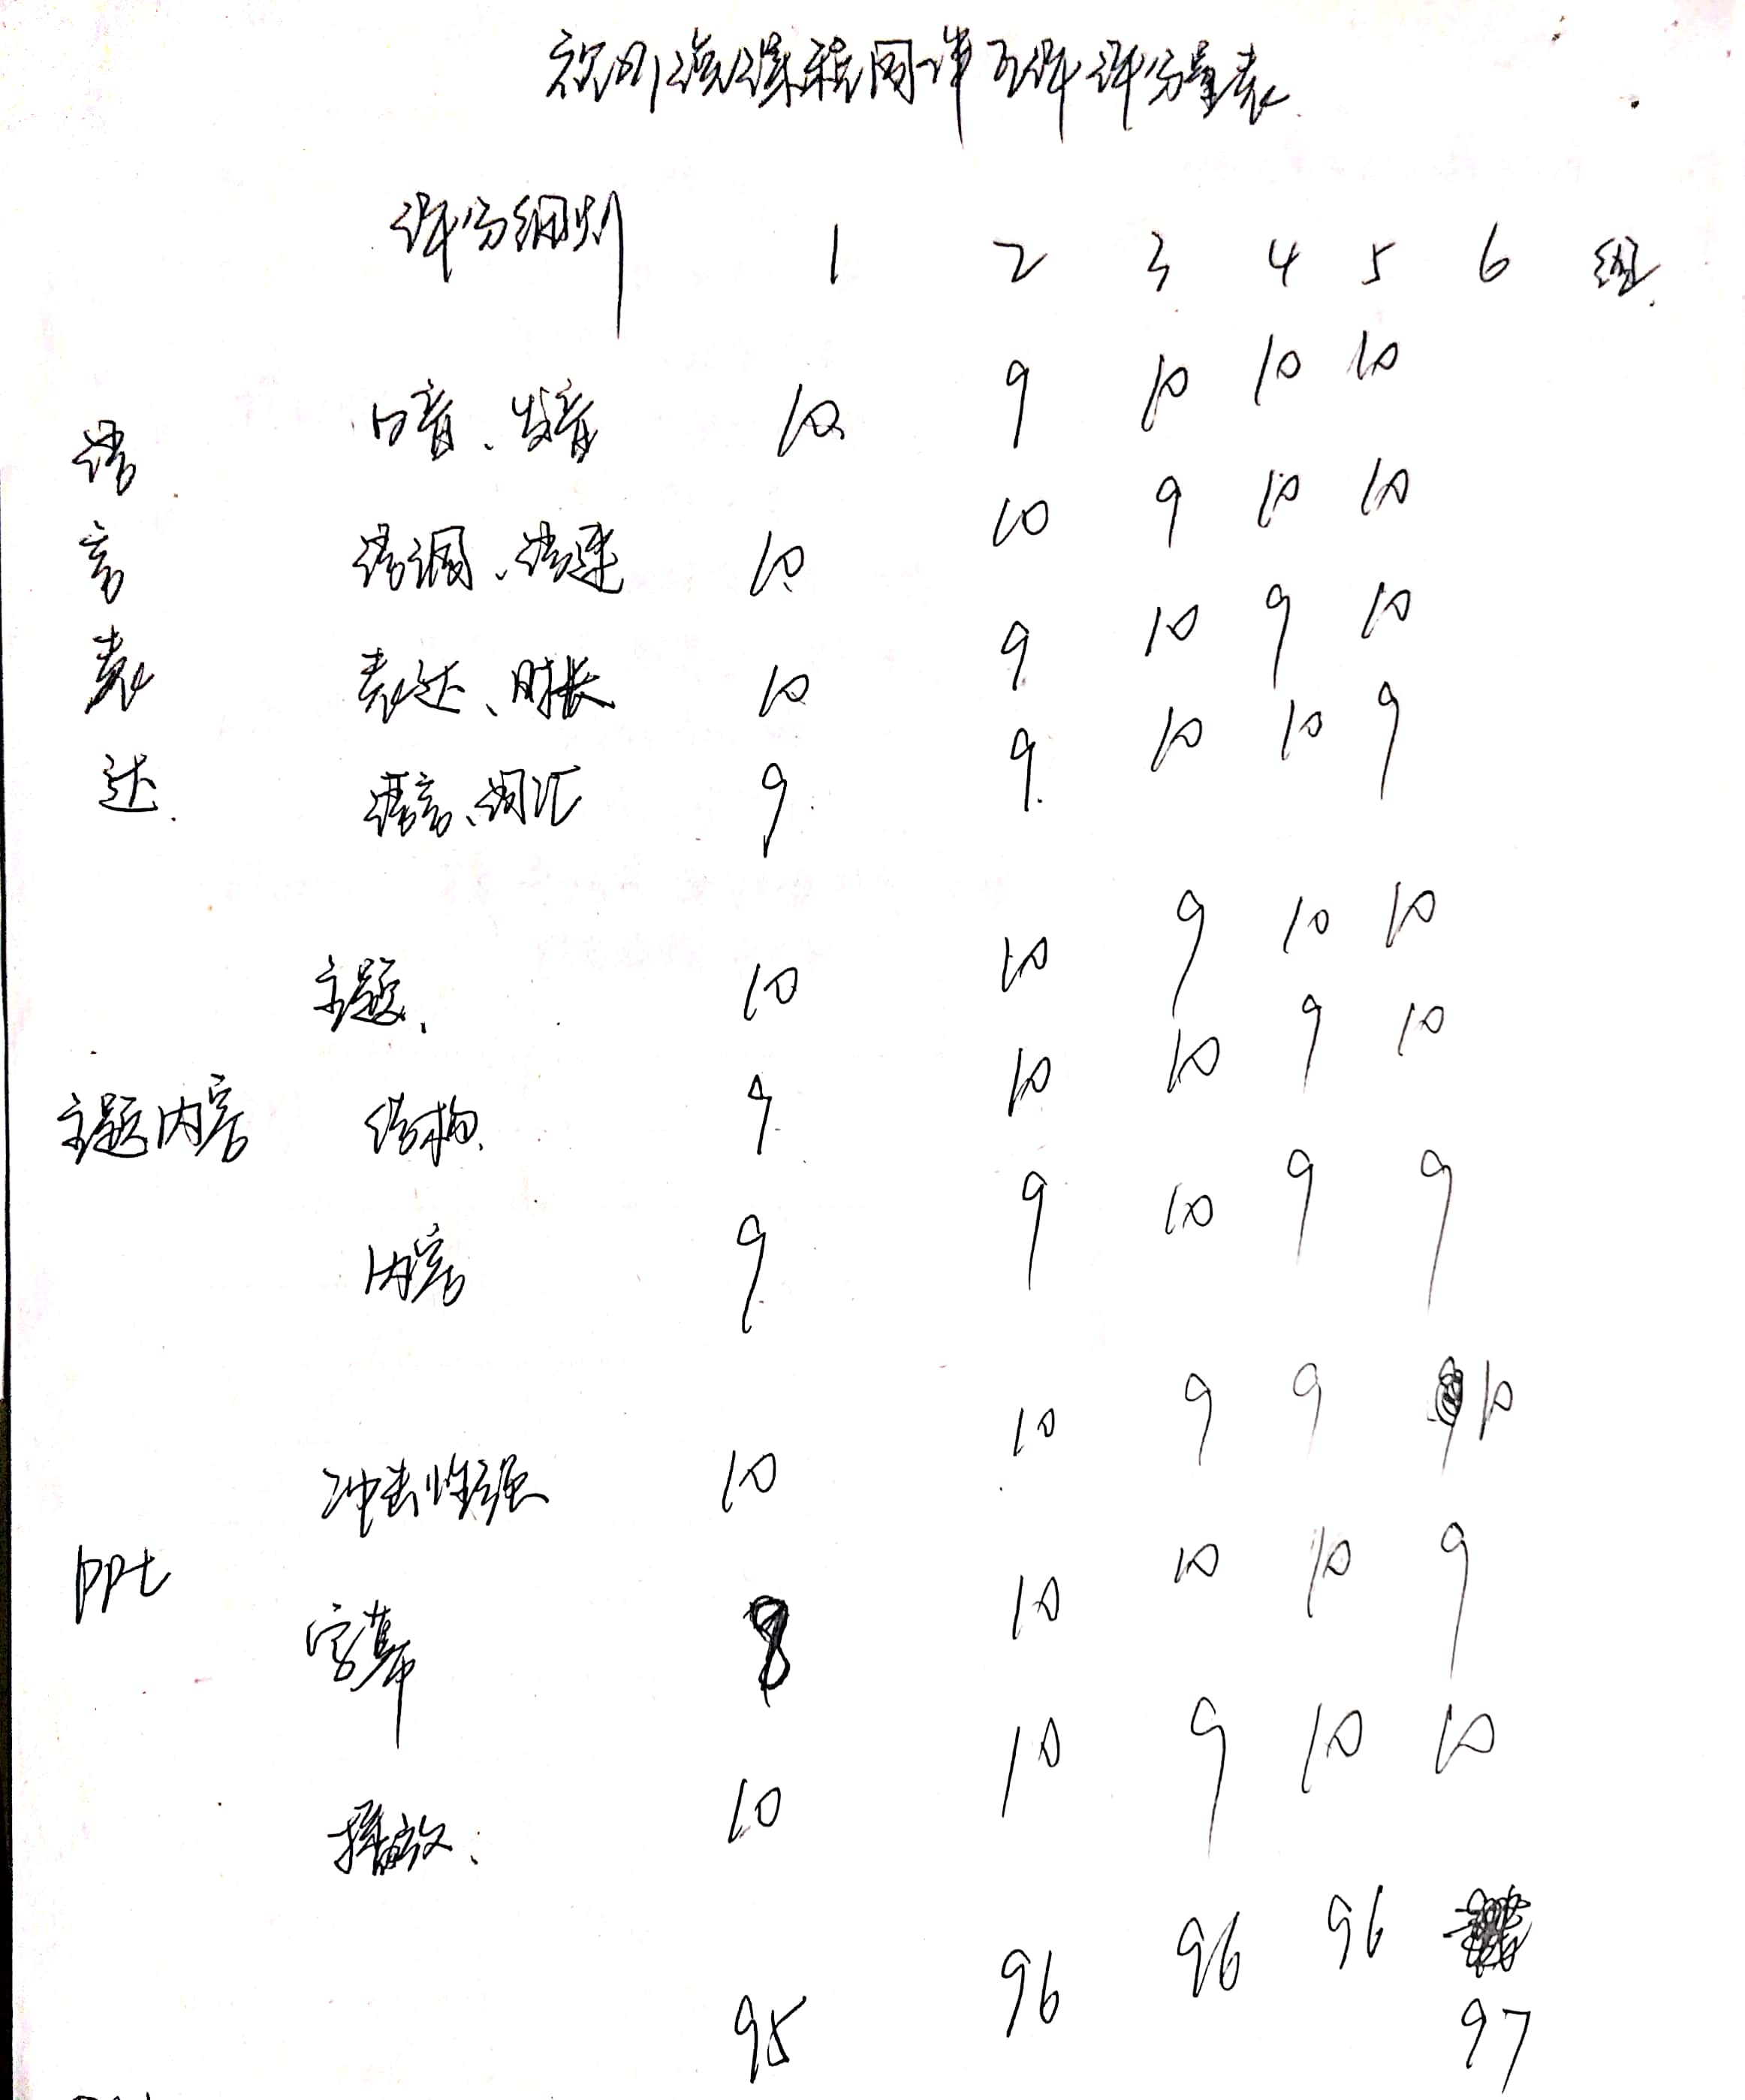 视听说课程同伴互评评分量表
评分细则 1 2 3 4 5 6 组
语言表达
口音、发音 10 9 10 10 10
语调、语速 10 10 9 10 10
表达、时长 10 9 10 9 10
语言、词汇 9 9 10 10 9
主题内容
主题、 10 10 9 10 10
结构 9 10 10 9 10
内容 9 9 10 9 9
PPt
冲击性强 10 10 9 9 10
字幕 8 10 10 10 9
播放 10 10 9 10 10
95 96 96 96 97